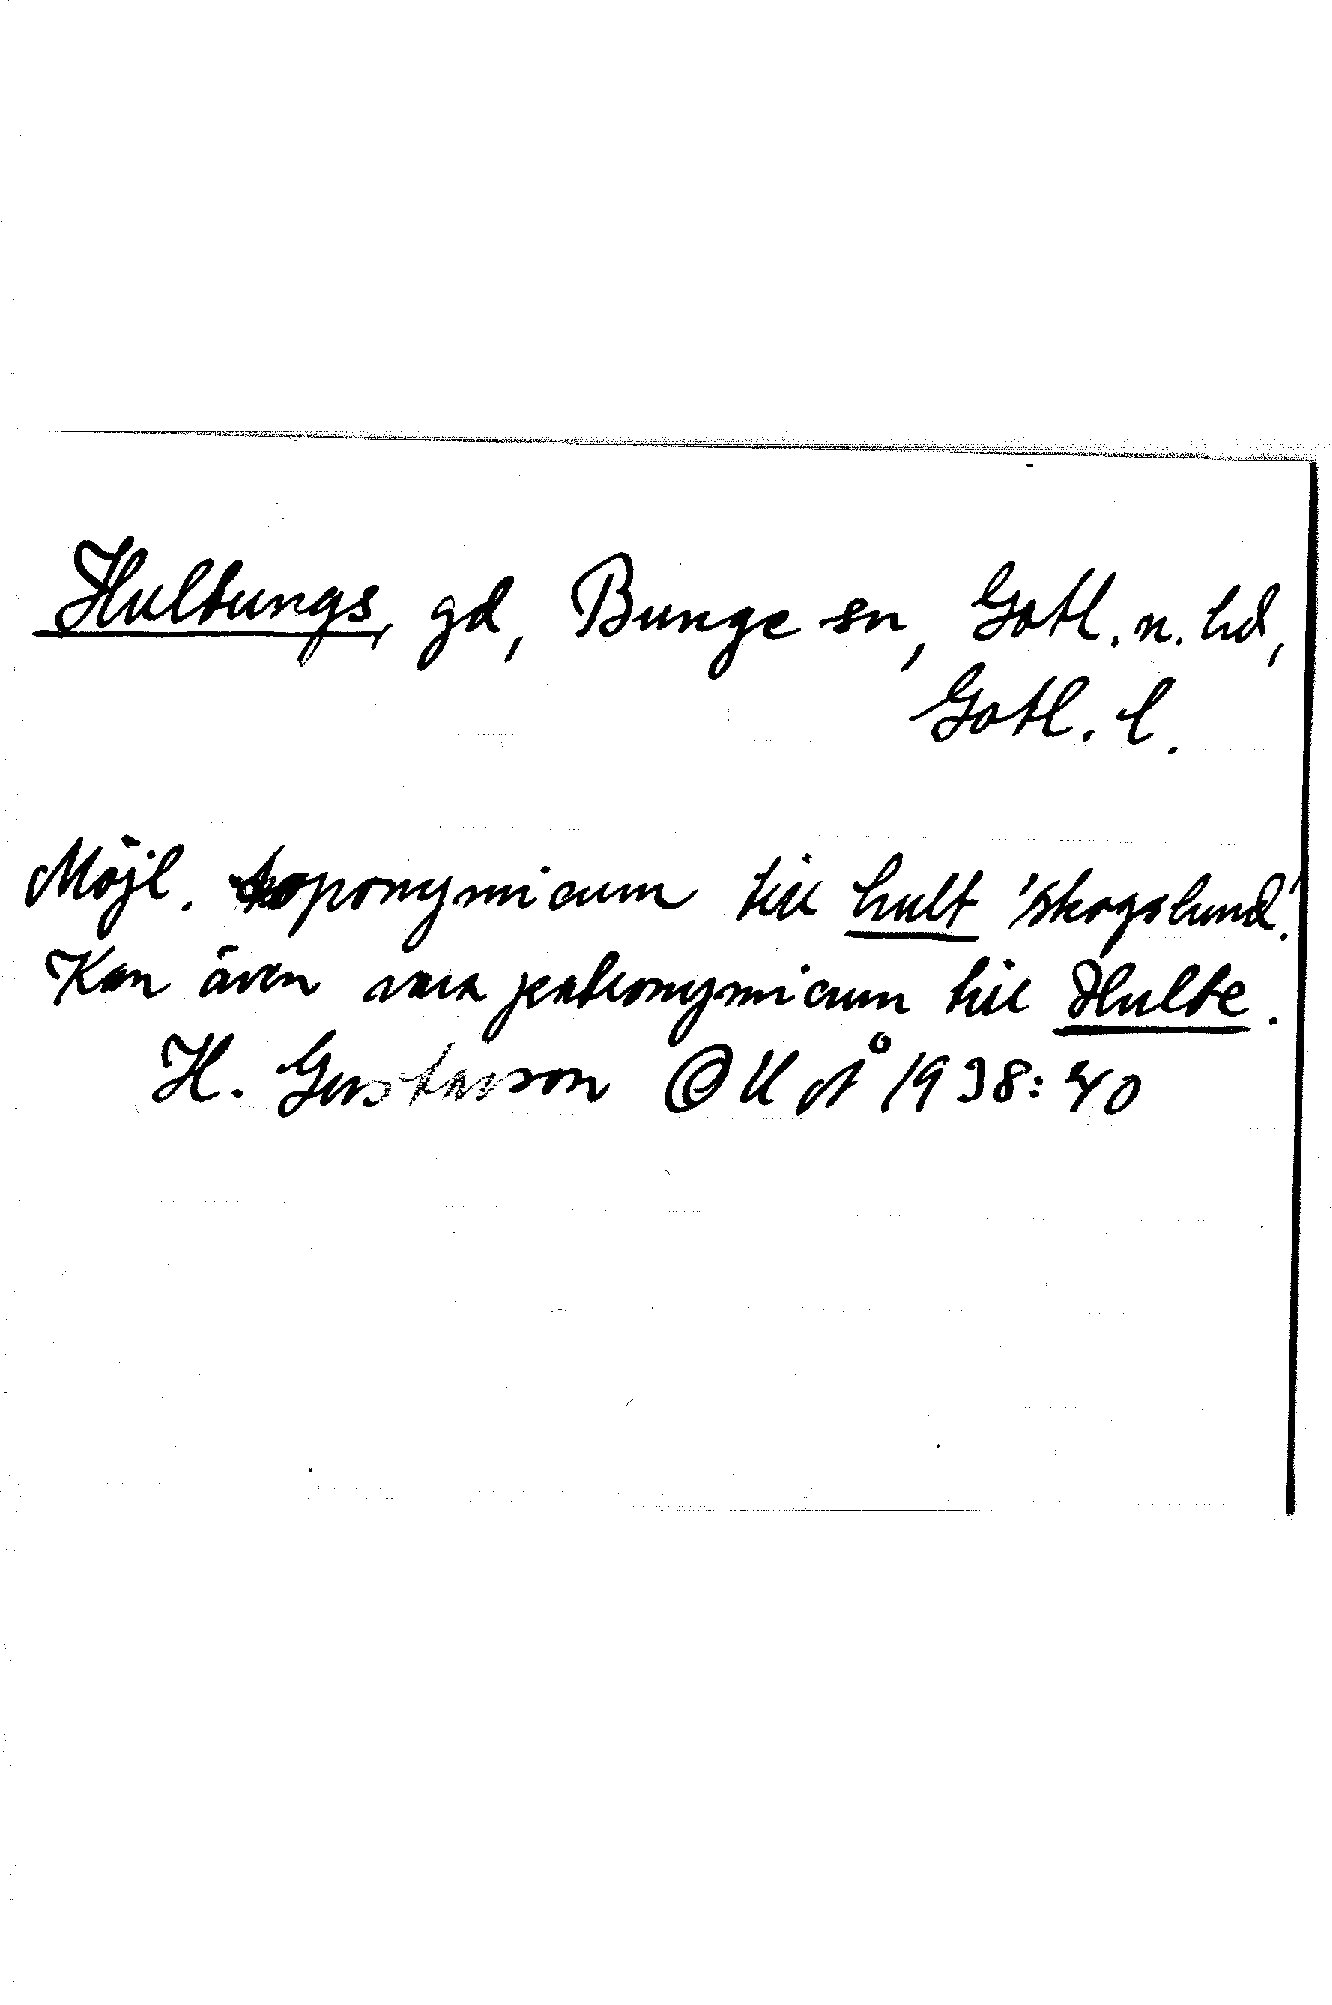 Hultungs, gd, Bunge sn, Gotl. n. hd,
Gotl. l.
Möjl. toponymicum till hult 'skogslund'.
Kan även vara patronymicum till Hulte.
H. Gustavson OUÅ 1938:40